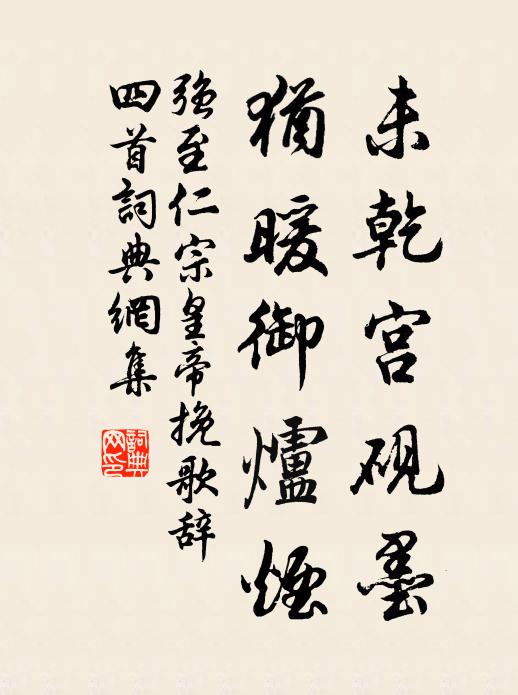 未乾宫砚墨
猶暖御爐煙
强至仁宗皇帝挽歌辞
四首詞典網集
詞典網印